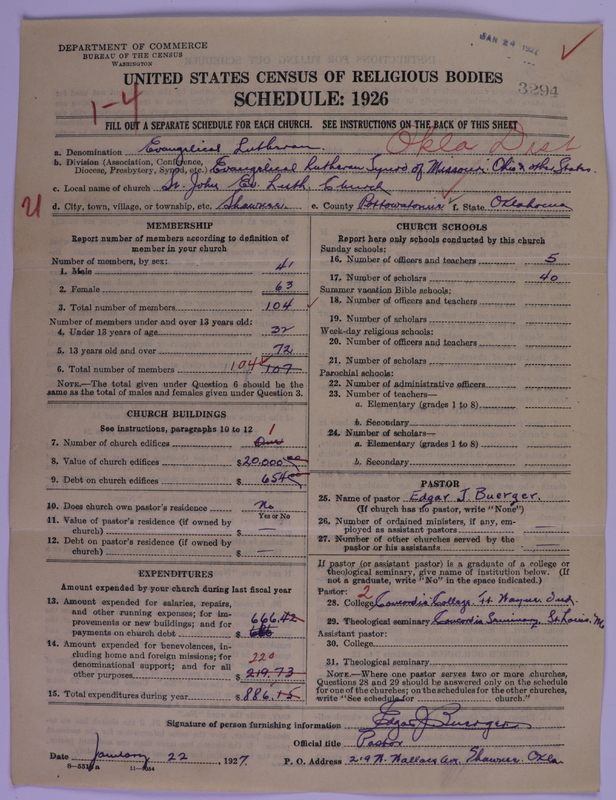 DEPARTMENT OF COMMERCE
BUREAU OF THE CENSUS
WASHINGTON
JAN 24 1927
UNITED STATES CENSUS OF RELIGIOUS BODIES
SCHEDULE: 1926
3294
1-4
FILL OUT A SEPARATE SCHEDULE FOR EACH CHURCH. SEE INSTRUCTIONS ON THE BACK OF THIS SHEET
Okla Dist
a. Denomination Evangelical Lutheran.
b. Division (Association, Conference, Diocese, Presbytery, Synod, etc.) Evangelical Lutheran Synod of Missouri Ohio & other States.
c. Local name of church St. John Ev. Luth. Church
d. City, town, village, or township, etc. Shawnee. e. County Pottowatomie f. State Oklahoma
MEMBERSHIP
Report number of members according to definition of
member in your church
Number of members, by sex:
1. Male 41
2. Female 63
3. Total number of members 104
Number of members under and over 13 years old:
4. Under 13 years of age 32
5. 13 years old and over 72
6. Total number of members 104 107
NOTE.—The total given under Question 6 should be the
same as the total of males and females given under Question 3.
CHURCH BUILDINGS
See instructions, paragraphs 10 to 12
7. Number of church edifices One 1
8. Value of church edifices $20,000.00
9. Debt on church edifices $ 654.00
10. Does church own pastor's residence No
Yes or No
11. Value of pastor's residence (if owned by
church) $ —
12. Debt on pastor's residence (if owned by
church) $ —
EXPENDITURES
Amount expended by your church during last fiscal year
13. Amount expended for salaries, repairs,
and other running expenses; for im-
provements or new buildings; and for
payments on church debt $ 666.42
14. Amount expended for benevolences, in-
cluding home and foreign missions; for
denominational support; and for all
other purposes $ 219.73 220
15. Total expenditures during year $ 886.15
CHURCH SCHOOLS
Report here only schools conducted by this church
Sunday schools:
16. Number of officers and teachers 5
17. Number of scholars 40
Summer vacation Bible schools:
18. Number of officers and teachers
19. Number of scholars
Week-day religious schools:
20. Number of officers and teachers
21. Number of scholars
Parochial schools:
22. Number of administrative officers
23. Number of teachers—
a. Elementary (grades 1 to 8)
b. Secondary
24. Number of scholars—
a. Elementary (grades 1 to 8)
b. Secondary
PASTOR
25. Name of pastor Edgar J. Buerger.
(If church has no pastor, write "None")
26. Number of ordained ministers, if any, em-
ployed as assistant pastors —
27. Number of other churches served by the
pastor or his assistants —
If pastor (or assistant pastor) is a graduate of a college or
theological seminary, give name of institution below. (If
not a graduate, write "No" in the space indicated.)
Pastor: 2
28. College Concordia College, Ft. Wayne Ind.
29. Theological seminary Concordia Seminary, St Louis, Mo
Assistant pastor:
30. College
31. Theological seminary
NOTE.—Where one pastor serves two or more churches,
Questions 28 and 29 should be answered only on the schedule
for one of the churches; on the schedules for the other churches,
write "See schedule for church."
Signature of person furnishing information Edgar J. Buerger
Official title Pastor
Date January 22, 1927. P. O. Address 219 N. Wallace Ave, Shawnee Okla.